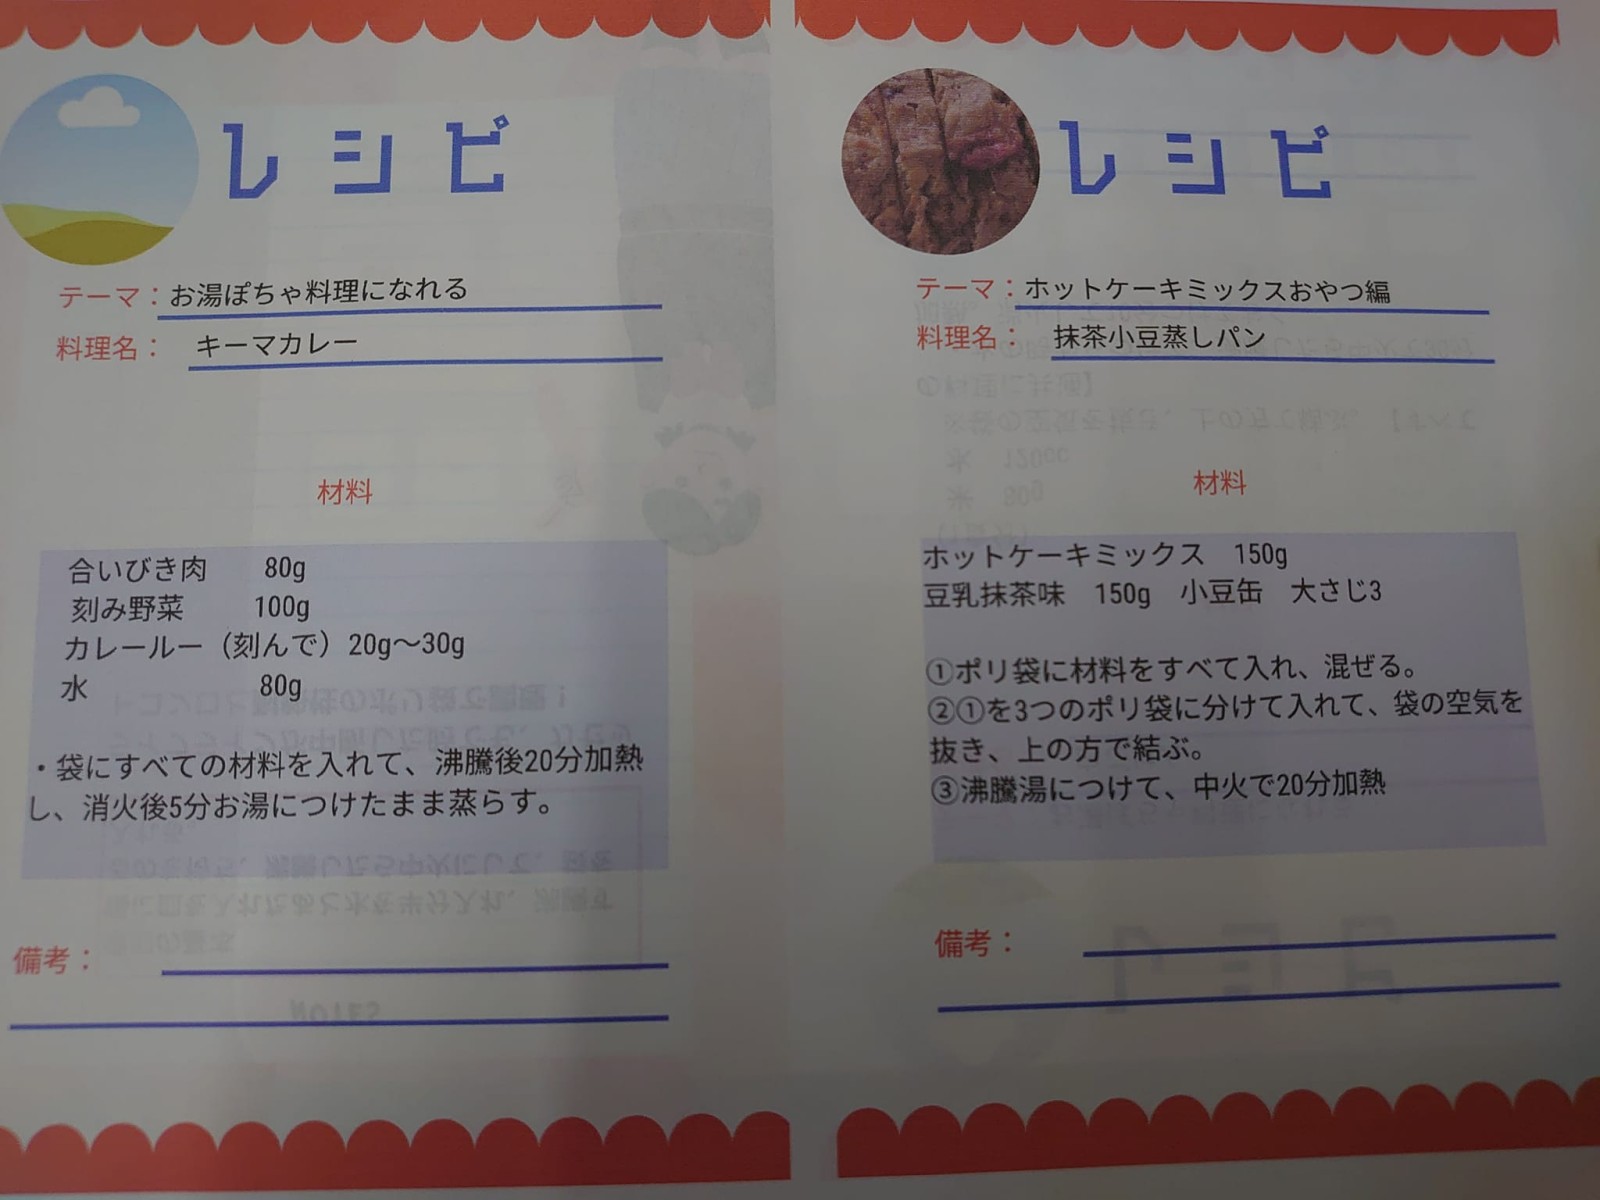 レシピ
テーマ：お湯ぽちゃ料理になれる
料理名： キーマカレー
材料
合いびき肉 80g
刻み野菜 100g
カレールー（刻んで）20g～30g
水 80g
・袋にすべての材料を入れて、沸騰後20分加熱
し、消火後5分お湯につけたまま蒸らす。
備考：
レシピ
テーマ：ホットケーキミックスおやつ編
料理名： 抹茶小豆蒸しパン
材料
ホットケーキミックス 150g
豆乳抹茶味 150g 小豆缶 大さじ3
①ポリ袋に材料をすべて入れ、混ぜる。
②①を3つのポリ袋に分けて入れて、袋の空気を
抜き、上の方で結ぶ。
③沸騰湯につけて、中火で20分加熱
備考：